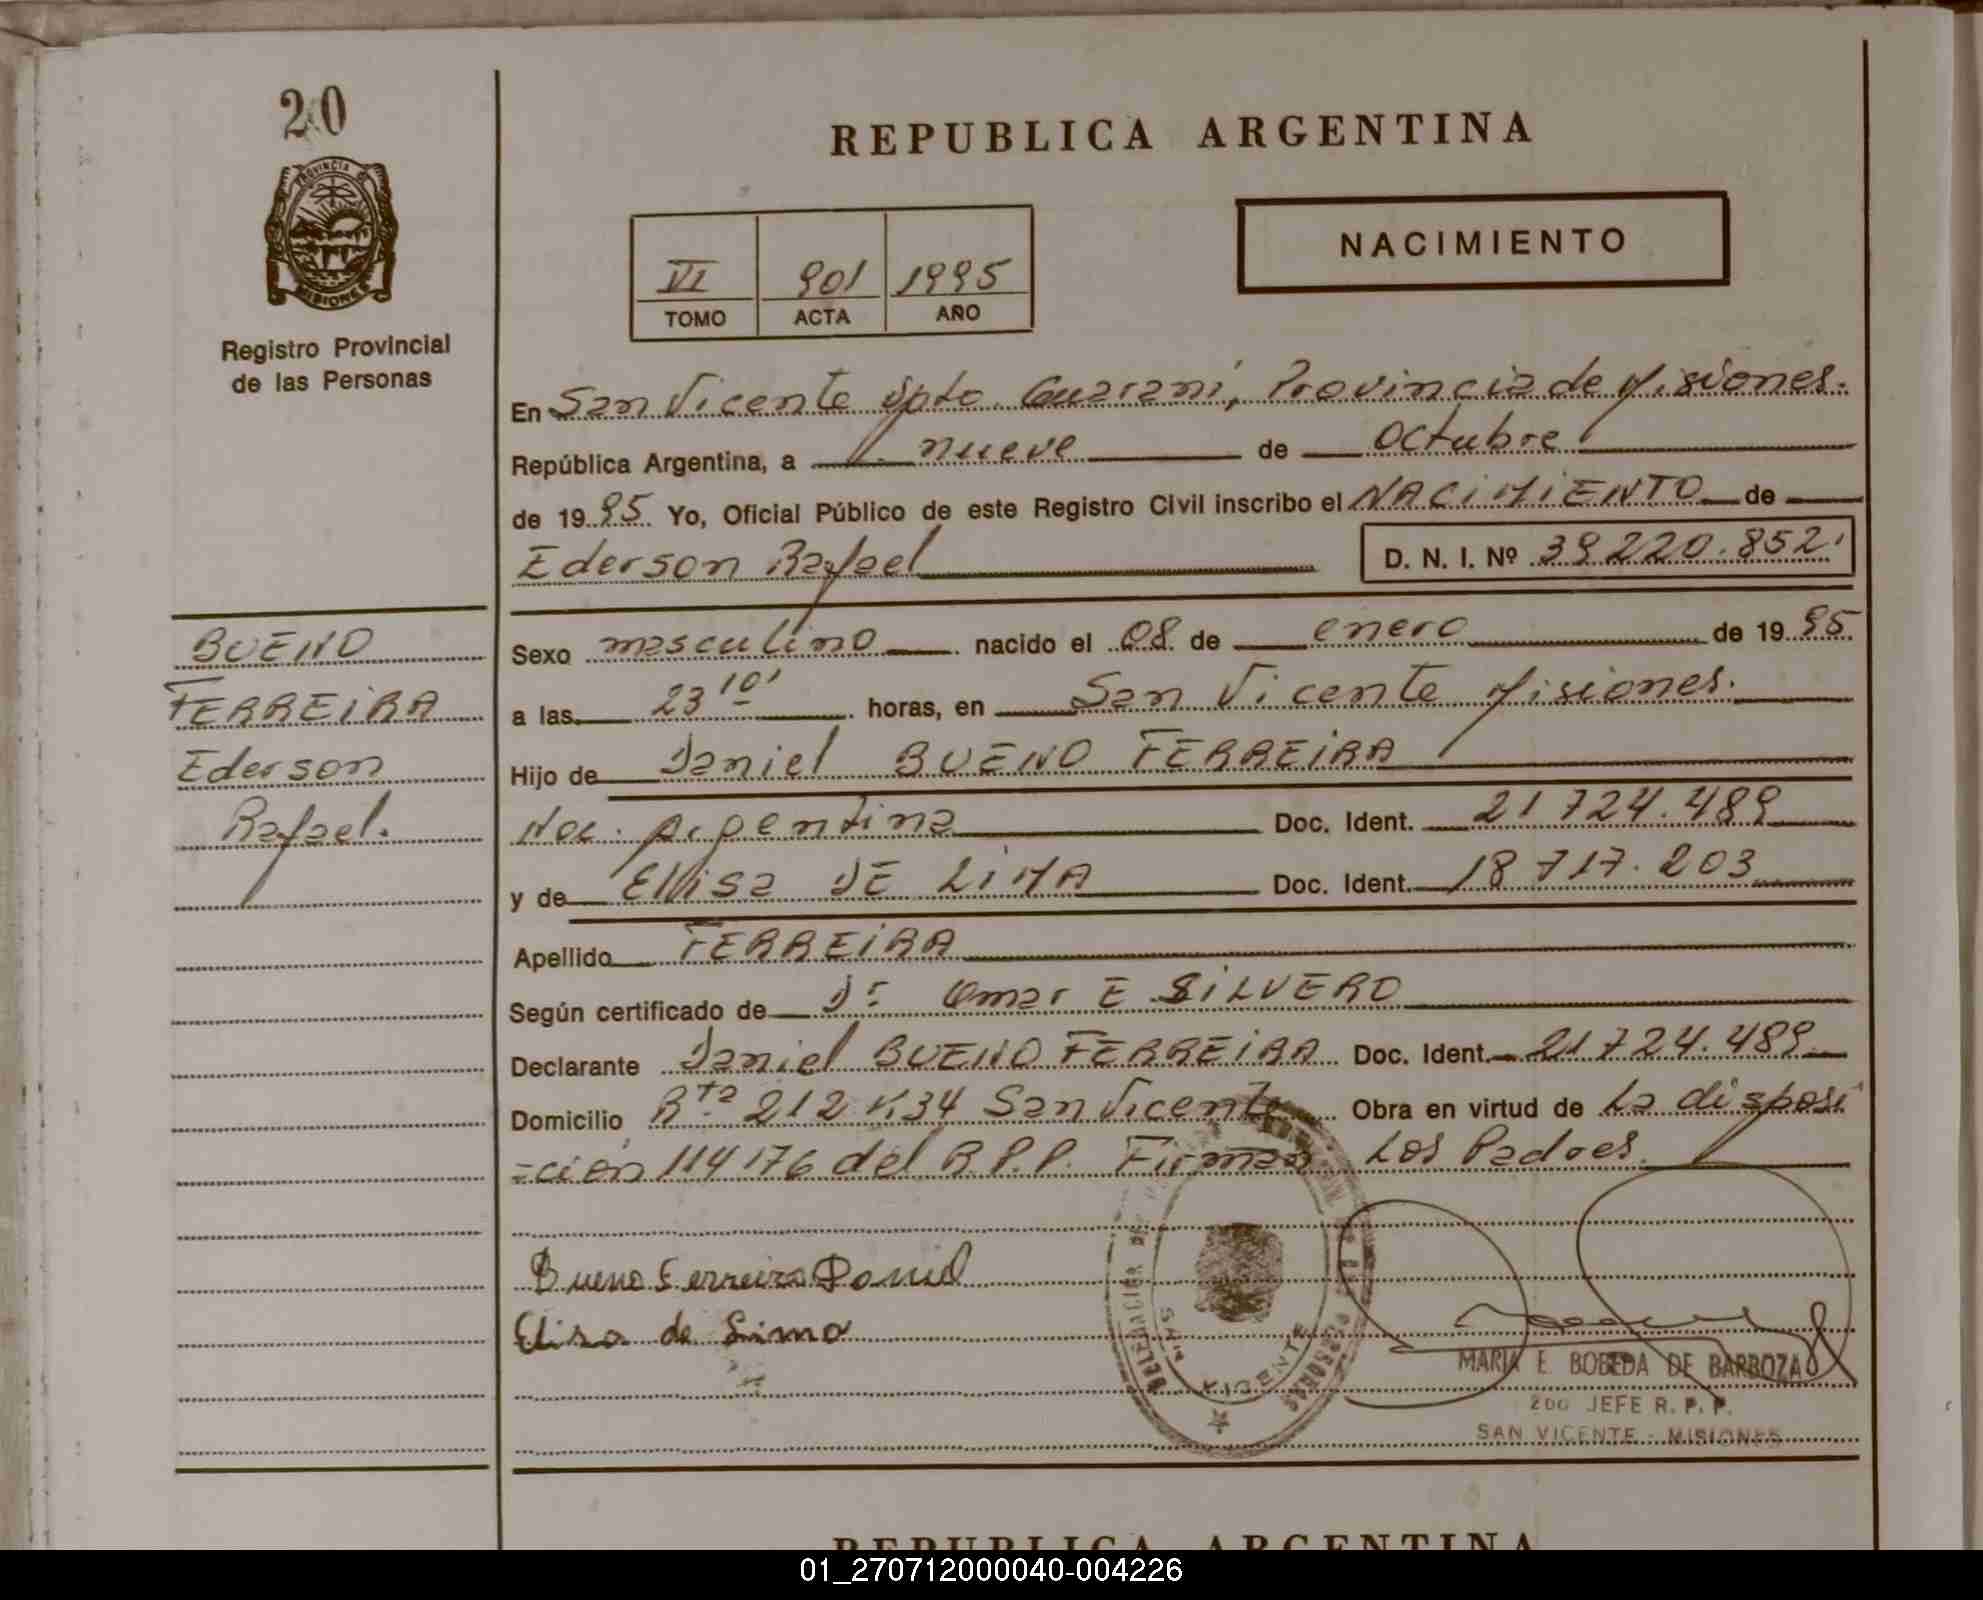 20
PROVINCIA DE
MISIONES
Registro Provincial
de las Personas
REPUBLICA ARGENTINA
NACIMIENTO
VI 901 1995
TOMO ACTA AÑO
En San Vicente Dpto. Guarani, Provincia de Misiones.
República Argentina, a nueve de octubre
de 1995 Yo, Oficial Público de este Registro Civil inscribo el NACIMIENTO de
Ederson Rafael D. N. I. Nº 39220.852.
BUENO
FERREIRA
Ederson
Rafael.
Sexo masculino nacido el 08 de enero de 1995
a las 23 10' horas, en San Vicente Misiones.
Hijo de Daniel BUENO FERREIRA
Nac. Argentina Doc. Ident. 21724.489
y de Elisa DE LIMA Doc. Ident. 18717.203
Apellido FERREIRA
Según certificado de Dr Omar E SILVERO
Declarante Daniel BUENO FERREIRA Doc. Ident. 21724.489
Domicilio Rta 212 K34 San Vicente Obra en virtud de La disposi
=ción 114176 del R.P.P. Firman Los Padres.
Bueno Ferreira Daniel
Elisa de Lima
PERSONAS
SAN VICENTE
MARIA E. BOBEDA DE BARBOZA
2do JEFE R. P. P.
SAN VICENTE - MISIONES
REPUBLICA ARGENTINA
01_270712000040-004226